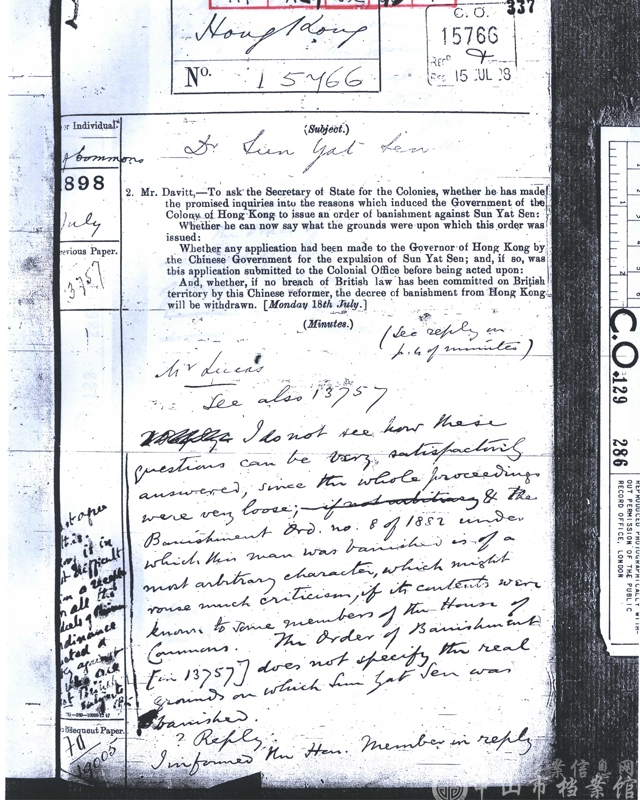 337
Hong Kong
No. 15766
C. O.
15766
RECD
REG 15 JUL 98
r Individual.
Commons
1898
July
revious Paper.
13757
(Subject.)
Dr Sun Yat Sen
2. Mr. Davitt,—To ask the Secretary of State for the Colonies, whether he has made
the promised inquiries into the reasons which induced the Government of the
Colony of Hong Kong to issue an order of banishment against Sun Yat Sen:
Whether he can now say what the grounds were upon which this order was
issued:
Whether any application had been made to the Governor of Hong Kong by
the Chinese Government for the expulsion of Sun Yat Sen; and, if so, was
this application submitted to the Colonial Office before being acted upon:
And, whether, if no breach of British law has been committed on British
territory by this Chinese reformer, the decree of banishment from Hong Kong
will be withdrawn. [Monday 18th July.]
(Minutes.)
(See reply on
p. 4 of minutes)
Mr Lucas
See also 13757
I do not see how these
questions can be very satisfactorily
answered, since the whole proceedings
were very loose, if not arbitrary & the
Banishment Ord. no. 8 of 1882 under
which this man was banished is of a
most arbitrary character, which might
rouse much criticism, if its contents were
known to some members of the House of
Commons. The Order of Banishment
[in 13757] does not specify the real
grounds on which Sun Yat Sen was
banished.
? Reply.
I informed the Hon. Member in reply
it in
difficult
all the
dinance
against
bsequent Paper.
19005
C.O. 129
286
REPRODUCED PHOTOGRAPHICALLY WITH-
OUT PERMISSION OF THE PUBLIC
RECORD OFFICE, LONDON
1
2
案信息网
中山市档案馆